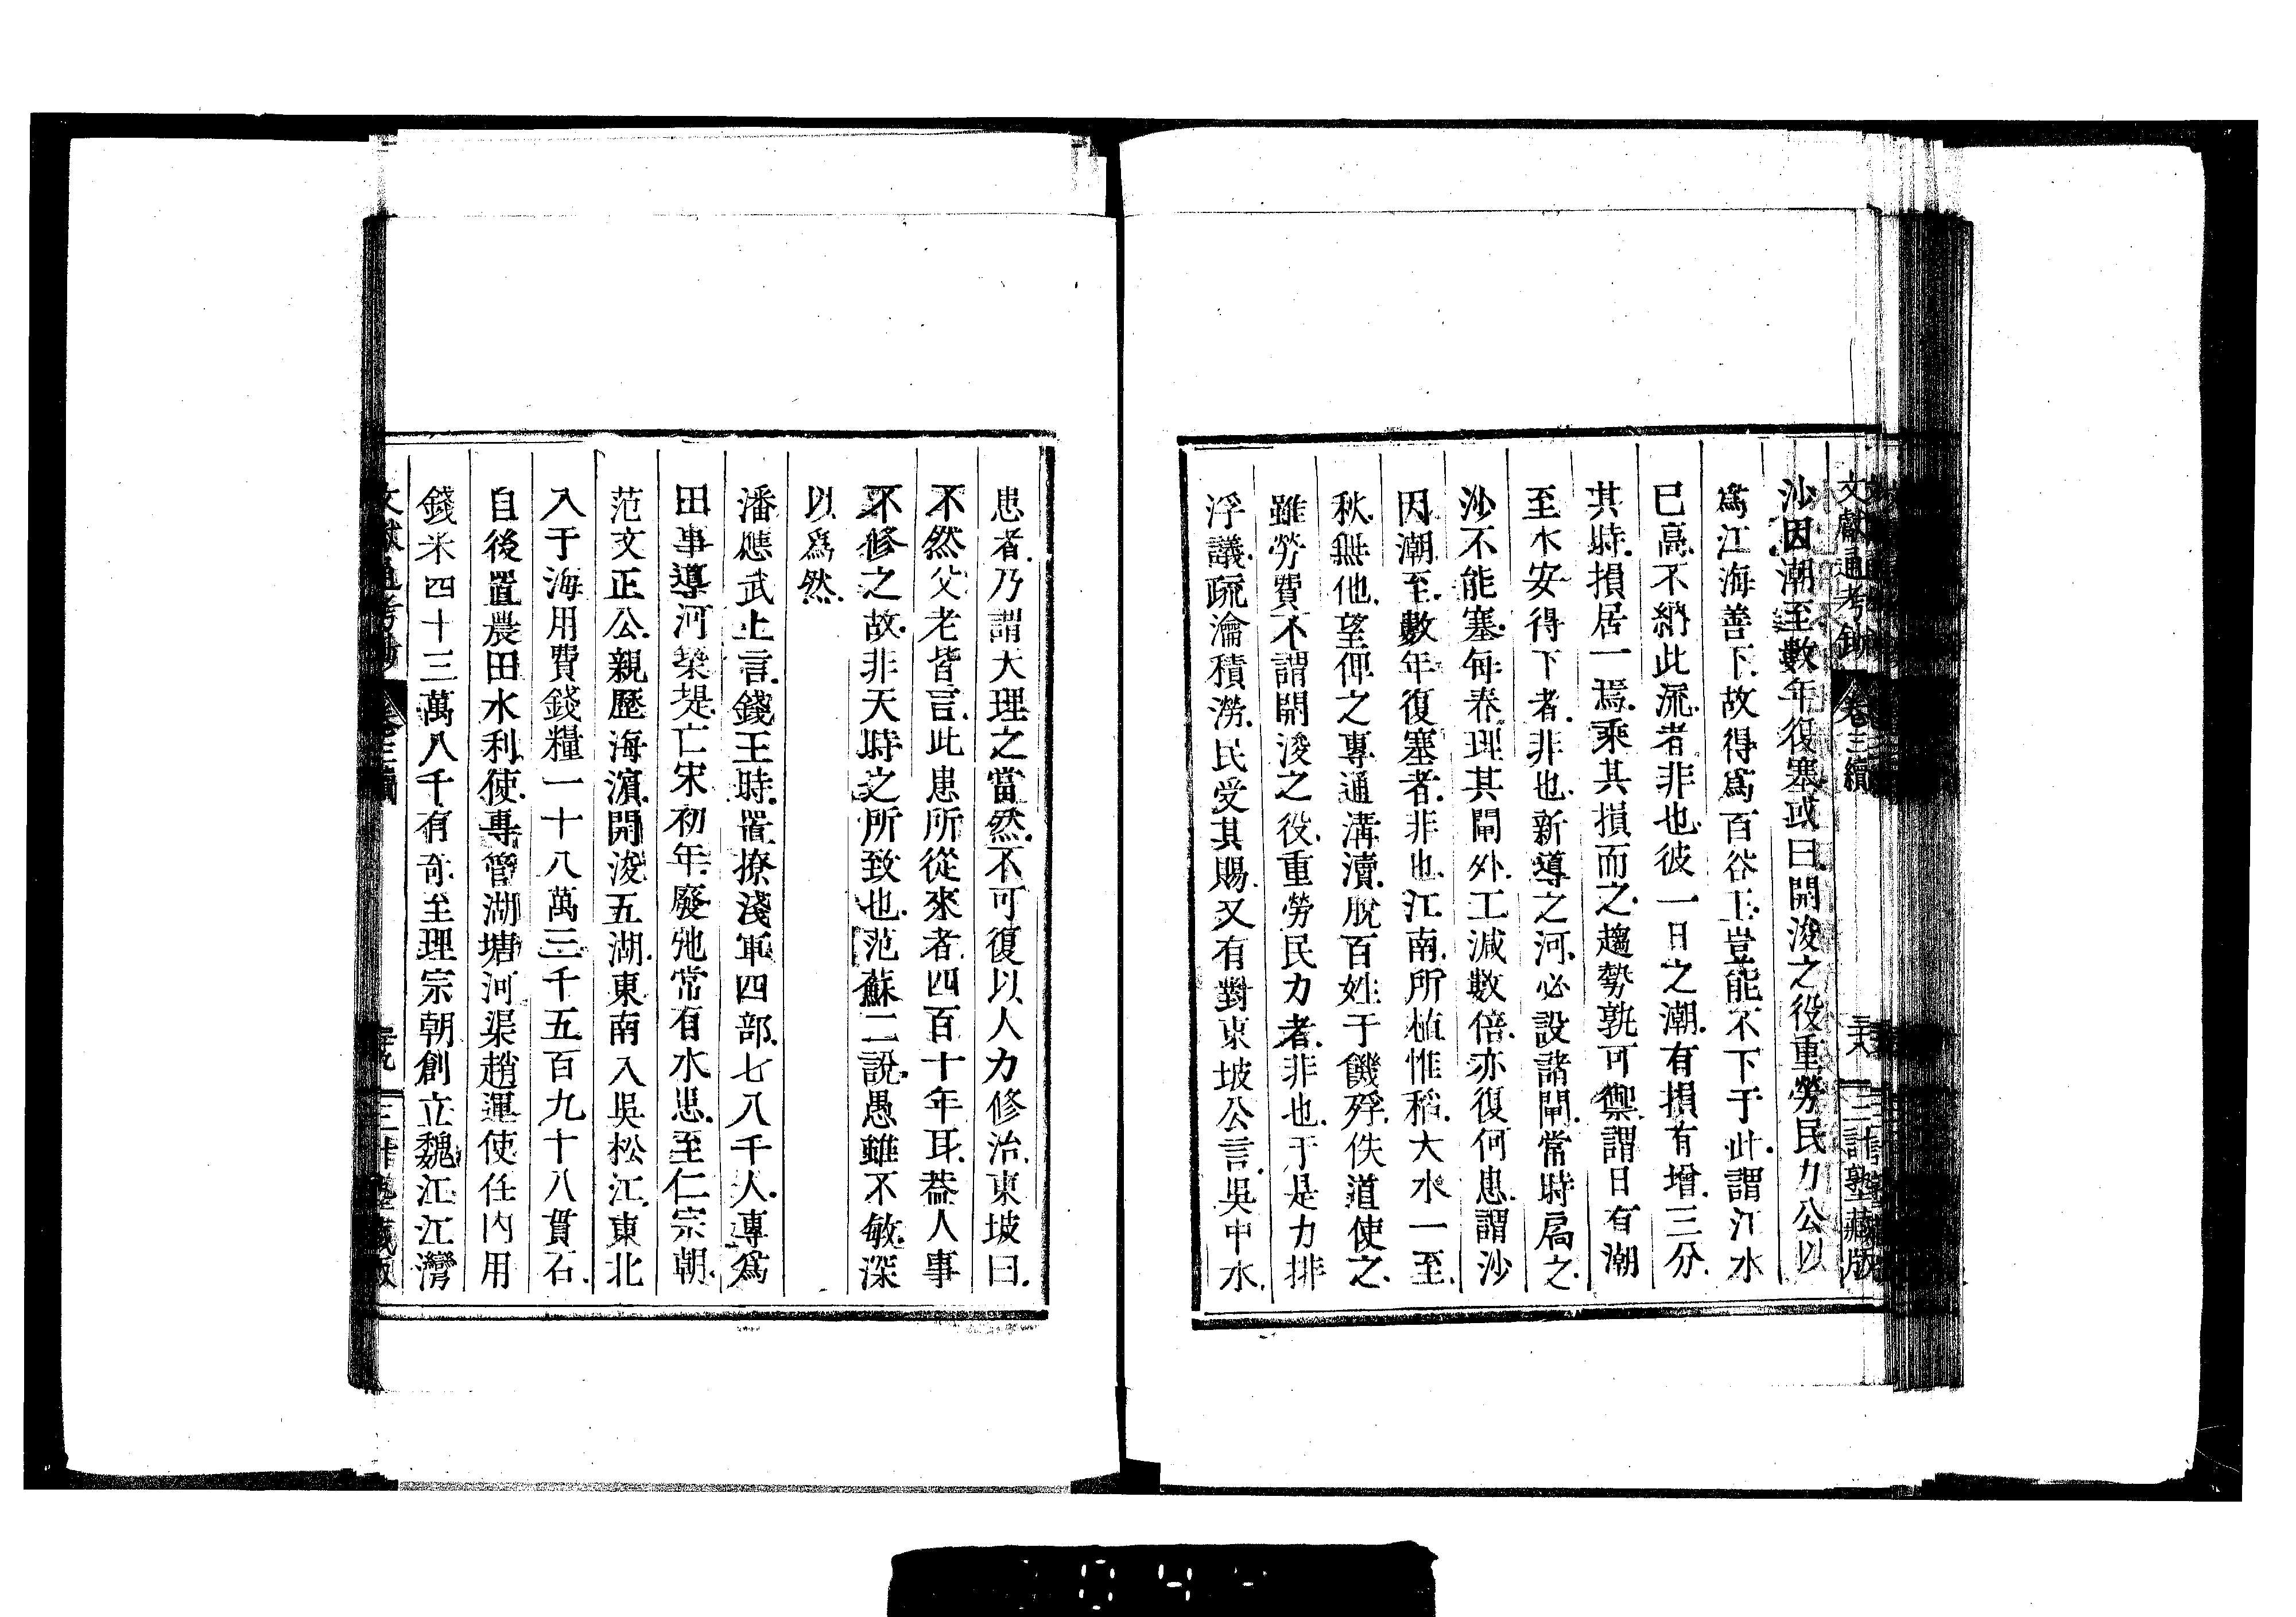 文獻通考鈔 卷三續 三計塾藏版
沙因潮至數年復塞或曰開浚之役重勞民力公以
爲江海善下故得爲百谷王豈能不下于此謂江水
已高不納此流者非也彼一日之潮有損有增三分
其時損居一焉乘其損而之趨勢孰可禦謂日有潮
至水安得下者非也新導之河必設諸閘常時扃之
沙不能塞每春理其閘外工減數倍亦復何患謂沙
因潮至數年復塞者非也江南所植惟稻大水一至
秋無他望俾之專通溝瀆脫百姓于饑殍佚道使之
雖勞費不謂開浚之役重勞民力者非也于是力排
浮議疏瀹積澇民受其賜又有對東坡公言吳中水
患者乃謂大理之當然不可復以人力修治東坡曰
不然父老皆言此患所從來者四百十年耳蓋人事
不修之故非天時之所致也范蘇二說愚雖不敏深
以爲然
潘應武上言錢王時置撩淺軍四部七八千人專爲
田事導河築堤亡宋初年廢弛常有水患至仁宗朝
范文正公親歷海濱開浚五湖東南入吳松江東北
入于海用費錢糧一十八萬三千五百九十八貫石
自後置農田水利使專管湖塘河渠趙運使任內用
錢米四十三萬八千有奇至理宗朝創立魏江江灣